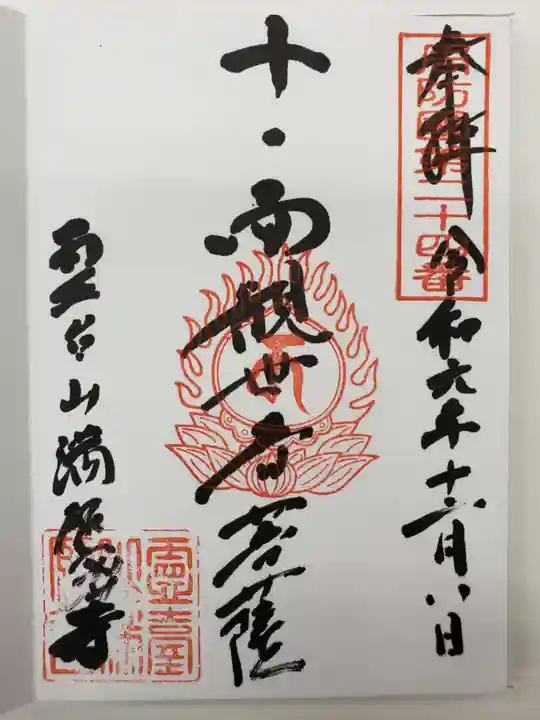 奉拝 令和六年十二月八日
周防国第二十四番
十一面観世音菩薩
霊台山満願寺